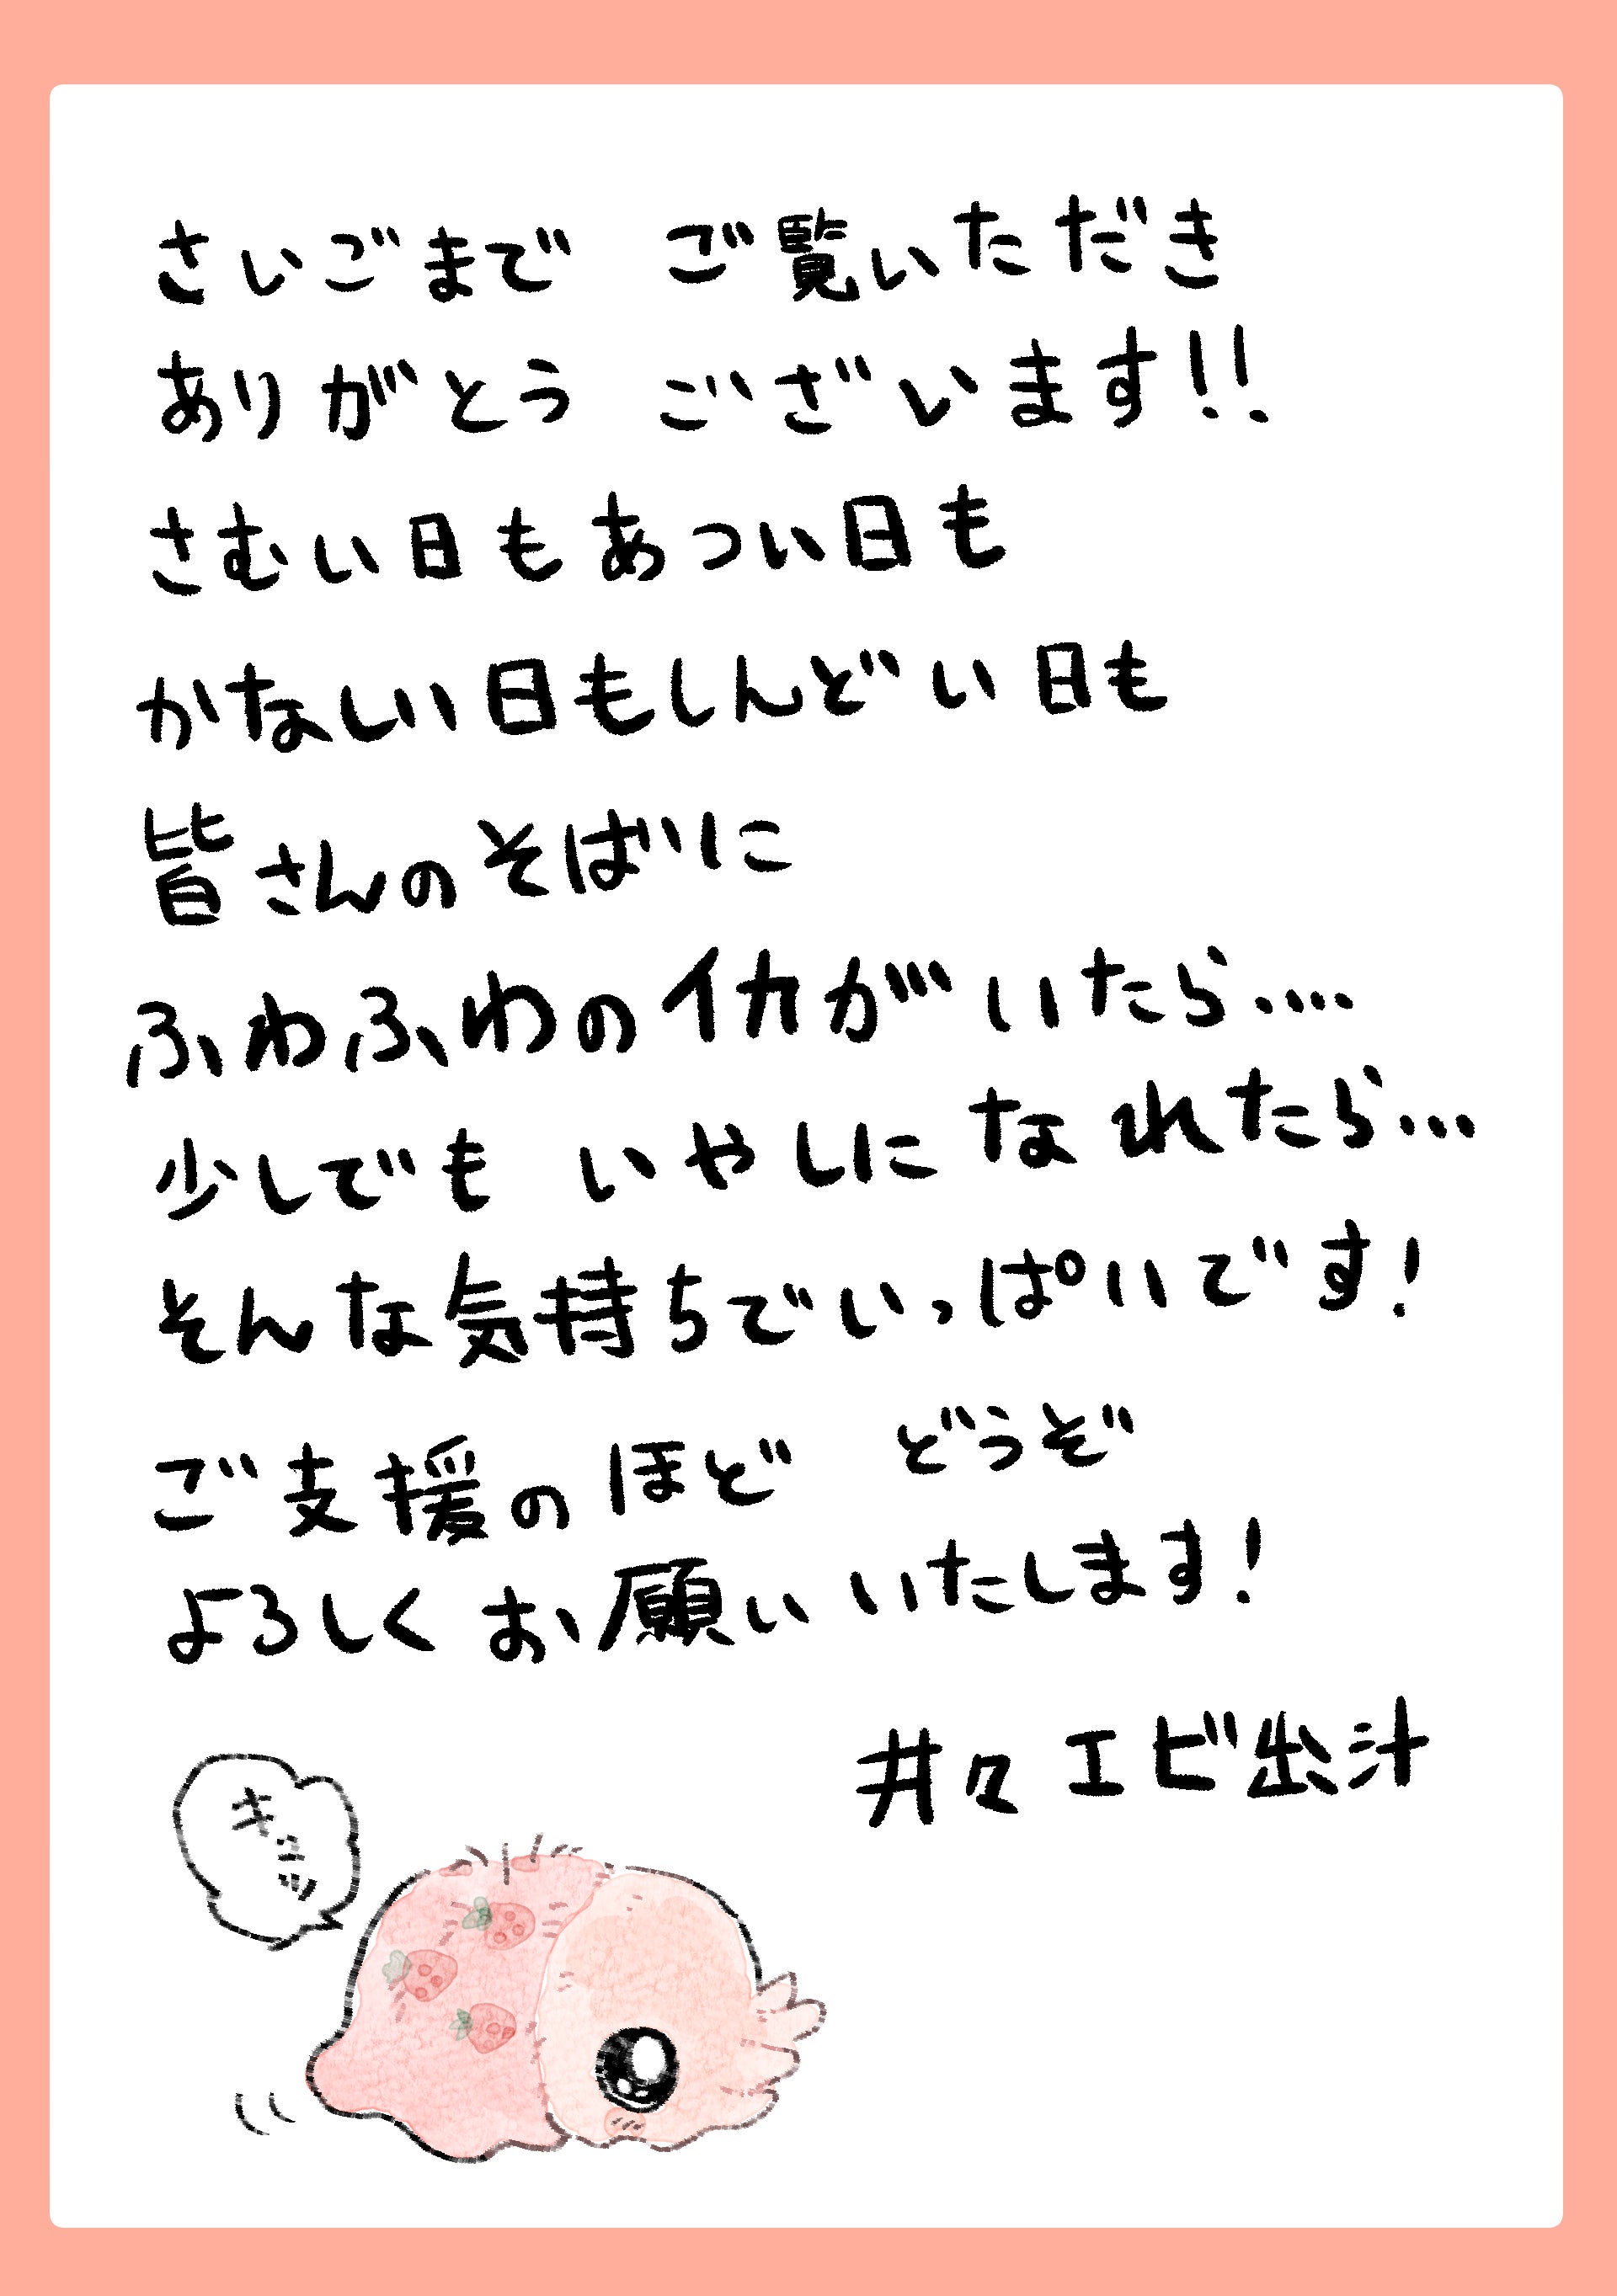 さいごまで ご覧いただき
ありがとう ございます!!
さむい日もあつい日も
かなしい日もしんどい日も
皆さんのそばに
ふわふわのイカがいたら....
少しでも いやしになれたら...
そんな気持ちでいっぱいです!
ご支援のほど どうぞ
よろしくお願いいたします!
井々エビ出汁